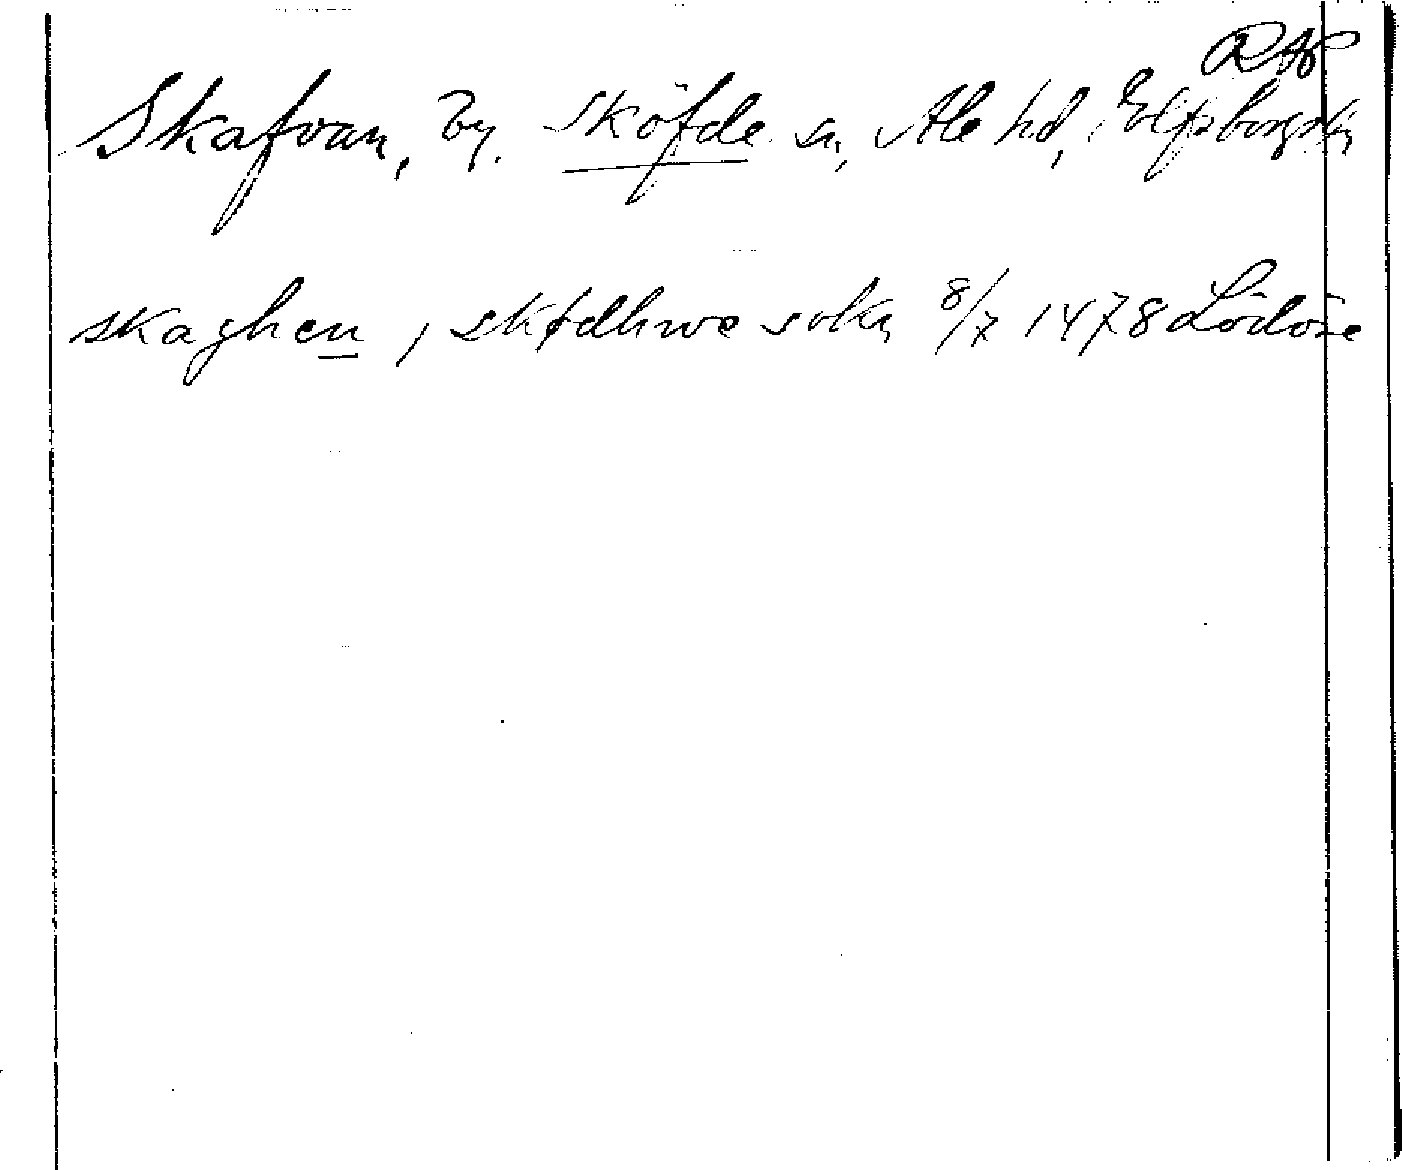 RAP
Skafvan, by. Sköfde sn, Ale hd, Elfsborgs län
skaghen, skødhwe sokn 8/7 1478 Lödöse